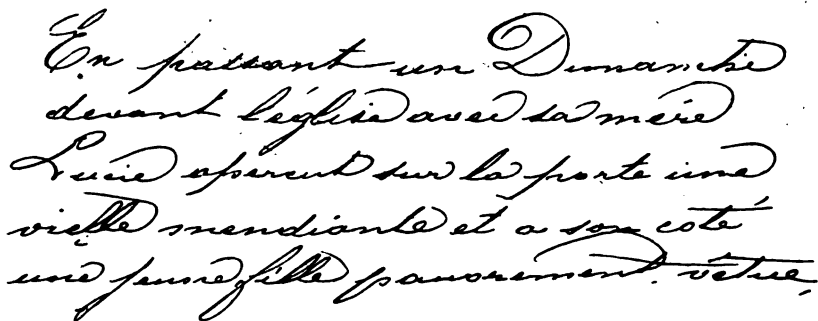 En passant un Dimanche
devant l'église avec sa mère
Lucie aperçut sur la porte une
vielle mendiante et a son coté
une jeune fille pauvrement vêtue,